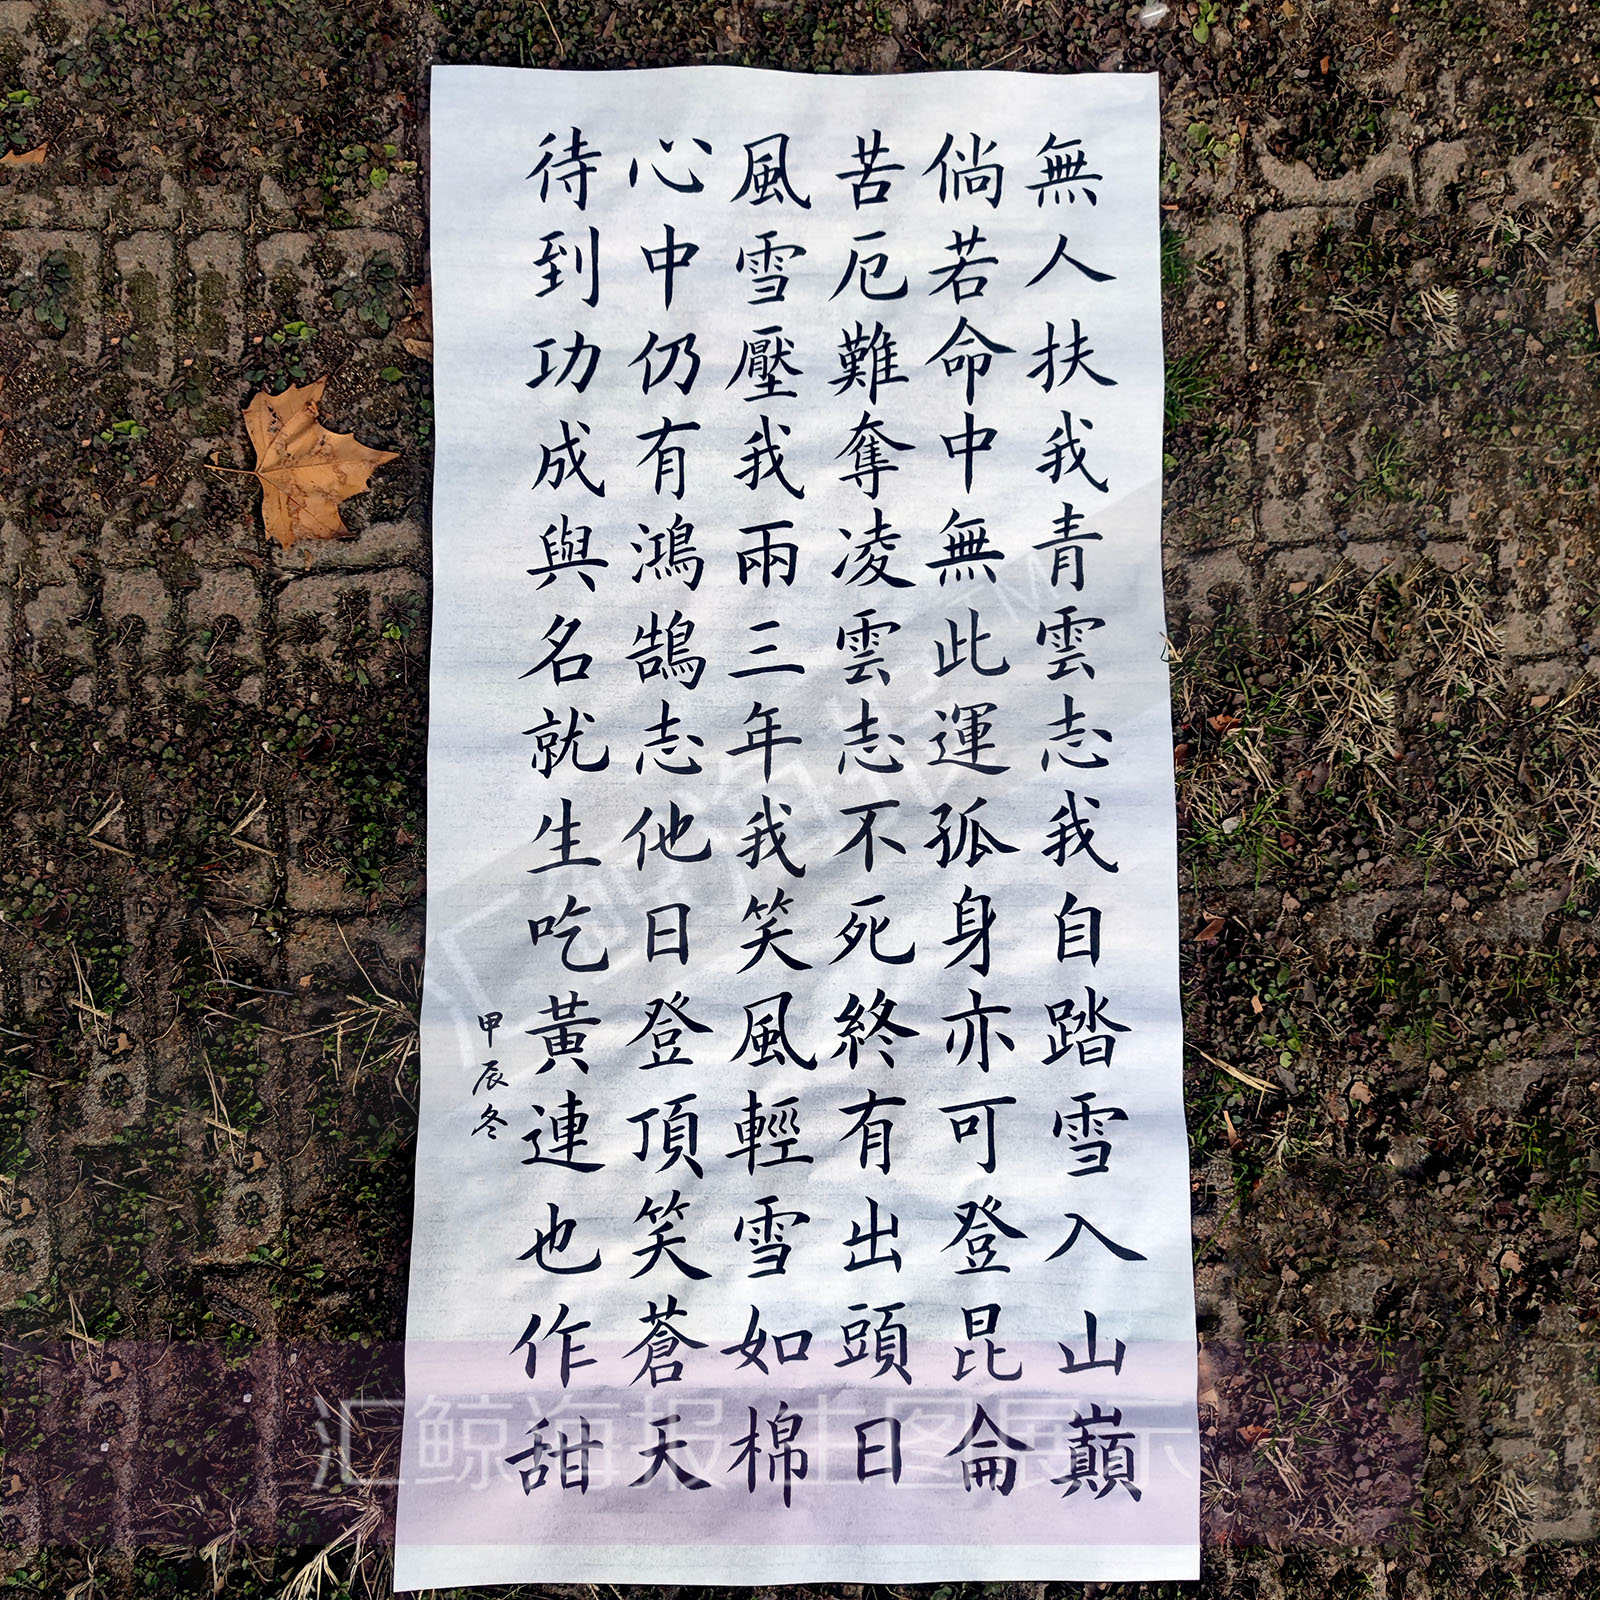 無人扶我青雲志我自踏雪入山巔
倘若命中無此運孤身亦可登昆侖
苦厄難奪凌雲志不死終有出頭日
風雪壓我兩三年我笑風輕雪如棉
心中仍有鴻鵠志他日登頂笑蒼天
待到功成與名就生吃黃連也作甜
甲辰冬
汇鲸海报
汇鲸海报 士图展示